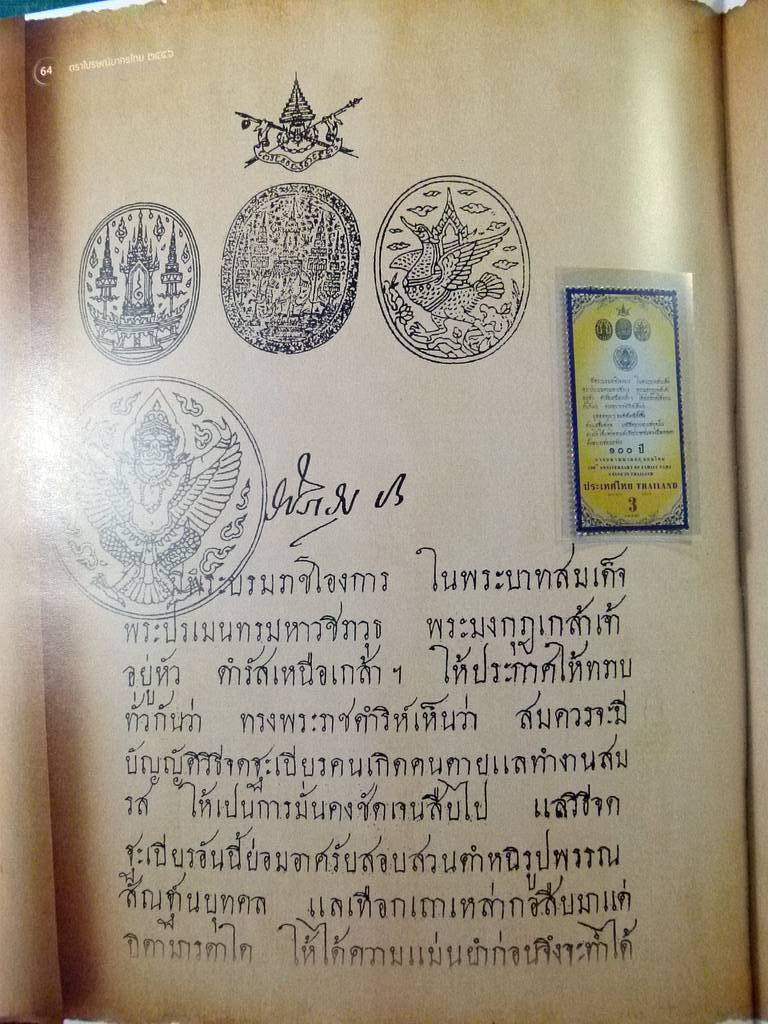 64
ตราไปรษณียากรไทย ๒๕๕๖
มีพระบรมราชโองการ ในพระบาทสมเด็จ
พระปรเมนทรมหาวชิราวุธ พระมงกุฎเกล้าเจ้า
อยู่หัว ดำรัสเหนือเกล้าฯ ให้ประกาศให้ทราบ
ทั่วกันว่า ทรงพระราชดำริห์เห็นว่า สมควรจะมี
บัญญัติวิธีจดทะเบียรคนเกิดคนตายแลทำงานสม
รส ให้เปนการมั่นคงชัดเจนสืบไป แลวิธีจด
ทะเบียรอันนี้ย่อมอาศรัยสอบสวนตำหนิรูปพรรณ
สัณฐานบุทคล แลเทือกเถาเหล่ากอสืบมาแต่
บิดามารดาใด ให้ได้ความแม่นยำก่อนจึงจะทำได้
๑๐๐ ปี
100th ANNIVERSARY OF FAMILY NAME
USING IN THAILAND
ประเทศไทย THAILAND
3